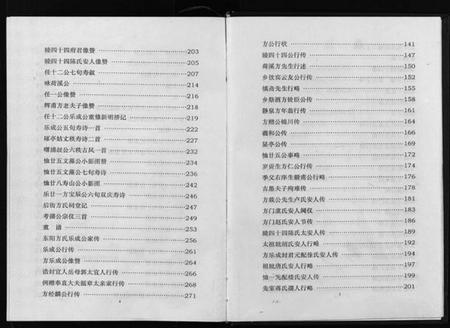 睦四十四府君像赞 203
睦四十四陈氏安人像赞 205
任十二公七旬寿叙 207
咏荷溪公 214
任一公像赞 217
树甫方老夫子像赞 218
任十二公乐成公重修新祠捞记 219
乐成公五旬寿诗一首 222
琢亭姑丈秩寿诗二首 227
曙浦叔公六秩古风一首 230
恤廿五文藤公小影图赞 234
恤廿五文藤公七旬寿诗 236
恤廿八寿山公小影图 242
乐廿一方宝辰公六旬双庆寿诗 246
后街方氏祠堂记 247
考浦公宗仪三首 249
重 253
东阳方氏乐成公家传 256
乐成公行传 261
方乐成公像赞 264
诰封宜人岳母郭太宜人行传 266
例赠奉直大夫蕴章太亲家行传 268
方经麟公行传 271
方公行状 141
睦四十四公行传 147
荷溪方先生行述 150
乡饮宾云友公行传 153
慎斋先生行略 155
乡祭酒方铨臣公传 158
静泉方年翁行传 161
方赠公楠川传 164
羲和公传 166
晃亭公传 169
恤廿五公事略 172
岁贡生方仁公行传 174
季父右庠生毓甫公行略 176
吉斋夫子殉难传 178
方载公先生卢氏安人传 181
方门虞氏安人阃仪 183
方门赵氏安人节传 186
睦四十四陈氏太安人传 189
太祖妣胡氏安人行略 192
方乐成封君元配徐氏安人传 194
祖妣唐氏安人行略 197
恤一允配楼氏安人传 199
先室蒋氏孺人行略 201